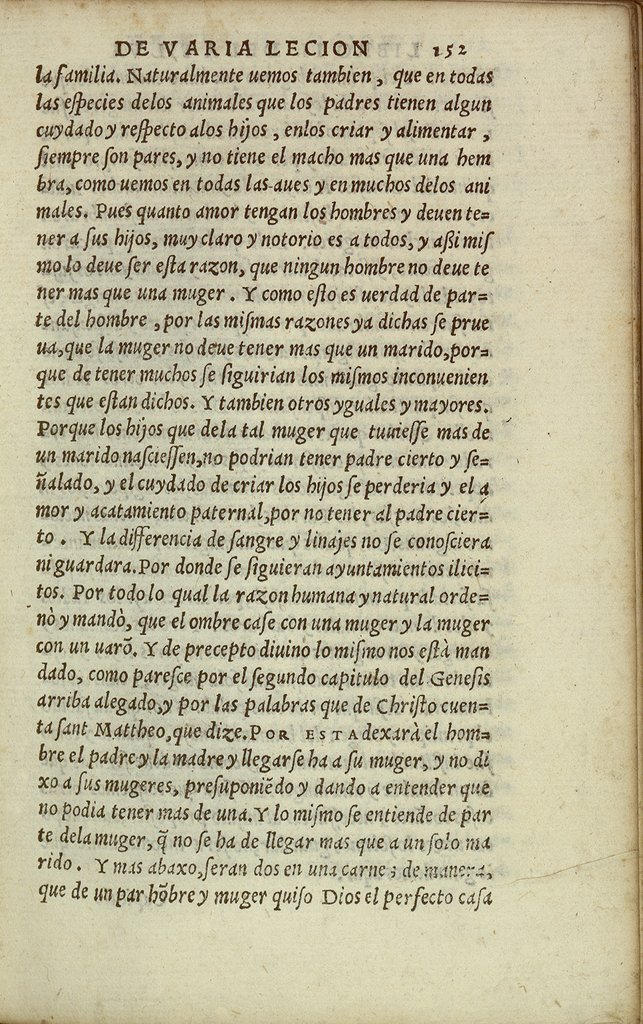 DE VARIA LECION 152
la familia. Naturalmente uemos tambien, que en todas
las eſpecies delos animales que los padres tienen algun
cuydado y reſpecto alos hijos, enlos criar y alimentar,
ſiempre ſon pares, y no tiene el macho mas que una hem
bra, como uemos en todas las aues y en muchos delos ani
males. Pues quanto amor tengan los hombres y deuen te=
ner a ſus hijos, muy claro y notorio es a todos, y aßi miſ
mo lo deue ſer eſta razon, que ningun hombre no deue te
ner mas que una muger. Y como eſto es uerdad de par=
te del hombre, por las miſmas razones ya dichas ſe prue
ua, que la muger no deue tener mas que un marido, por=
que de tener muchos ſe ſiguirian los miſmos inconuenien
tes que eſtan dichos. Y tambien otros yguales y mayores.
Porque los hijos que dela tal muger que tuuieſſe mas de
un marido naſcieſſen, no podrian tener padre cierto y ſe=
ñalado, y el cuydado de criar los hijos ſe perderia y el a
mor y acatamiento paternal, por no tener al padre cier=
to. Y la differencia de ſangre y linajes no ſe conoſciera
ni guardara. Por donde ſe ſiguieran ayuntamientos ilici=
tos. Por todo lo qual la razon humana y natural orde=
nò y mandò, que el ombre caſe con una muger y la muger
con un uarõ. Y de precepto diuino lo miſmo nos eſtà man
dado, como pareſce por el ſegundo capitulo del Geneſis
arriba alegado, y por las palabras que de Chriſto cuen=
ta ſant Mattheo, que dize. POR ESTA dexarà el hom=
bre el padre y la madre y llegarſe ha a ſu muger, y no di
xo a ſus mugeres, preſuponiẽdo y dando a entender que
no podia tener mas de una. Y lo miſmo ſe entiende de par
te dela muger, q̃ no ſe ha de llegar mas que a un ſolo ma
rido. Y mas abaxo, ſeran dos en una carne; de manera,
que de un par hõbre y muger quiſo Dios el perfecto caſa